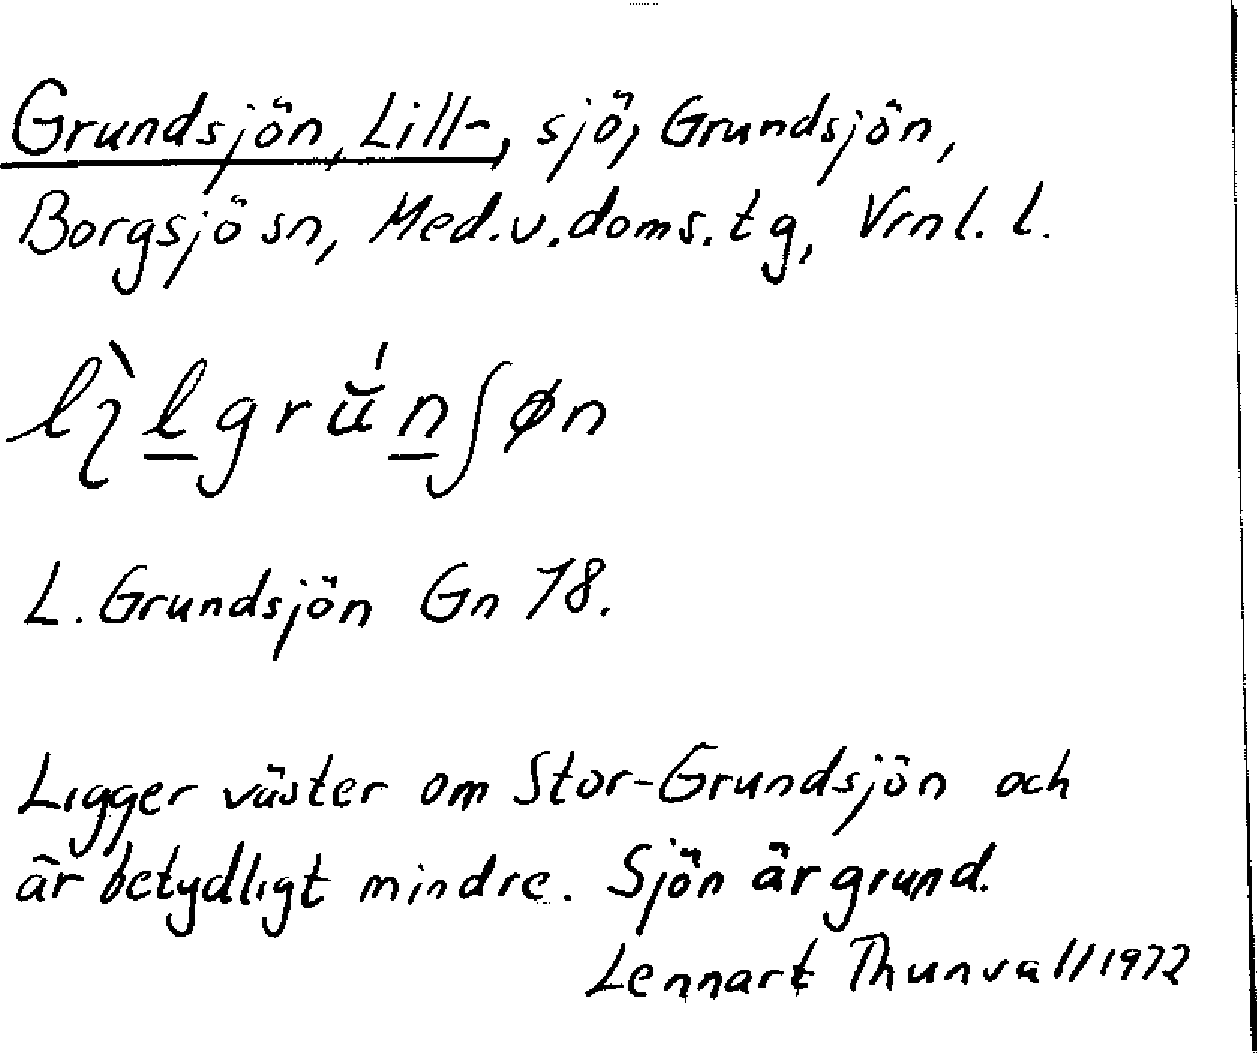 Grundsjön, Lill-, sjö, Grundsjön,
Borgsjö sn, Med.v.doms.tg, Vrnl. l.
lìl̲grŭ́n̲ʃøn
L. Grundsjön Gn 78.
Ligger väster om Stor-Grundsjön och
är betydligt mindre. Sjön är grund.
Lennart Thunvall 1972